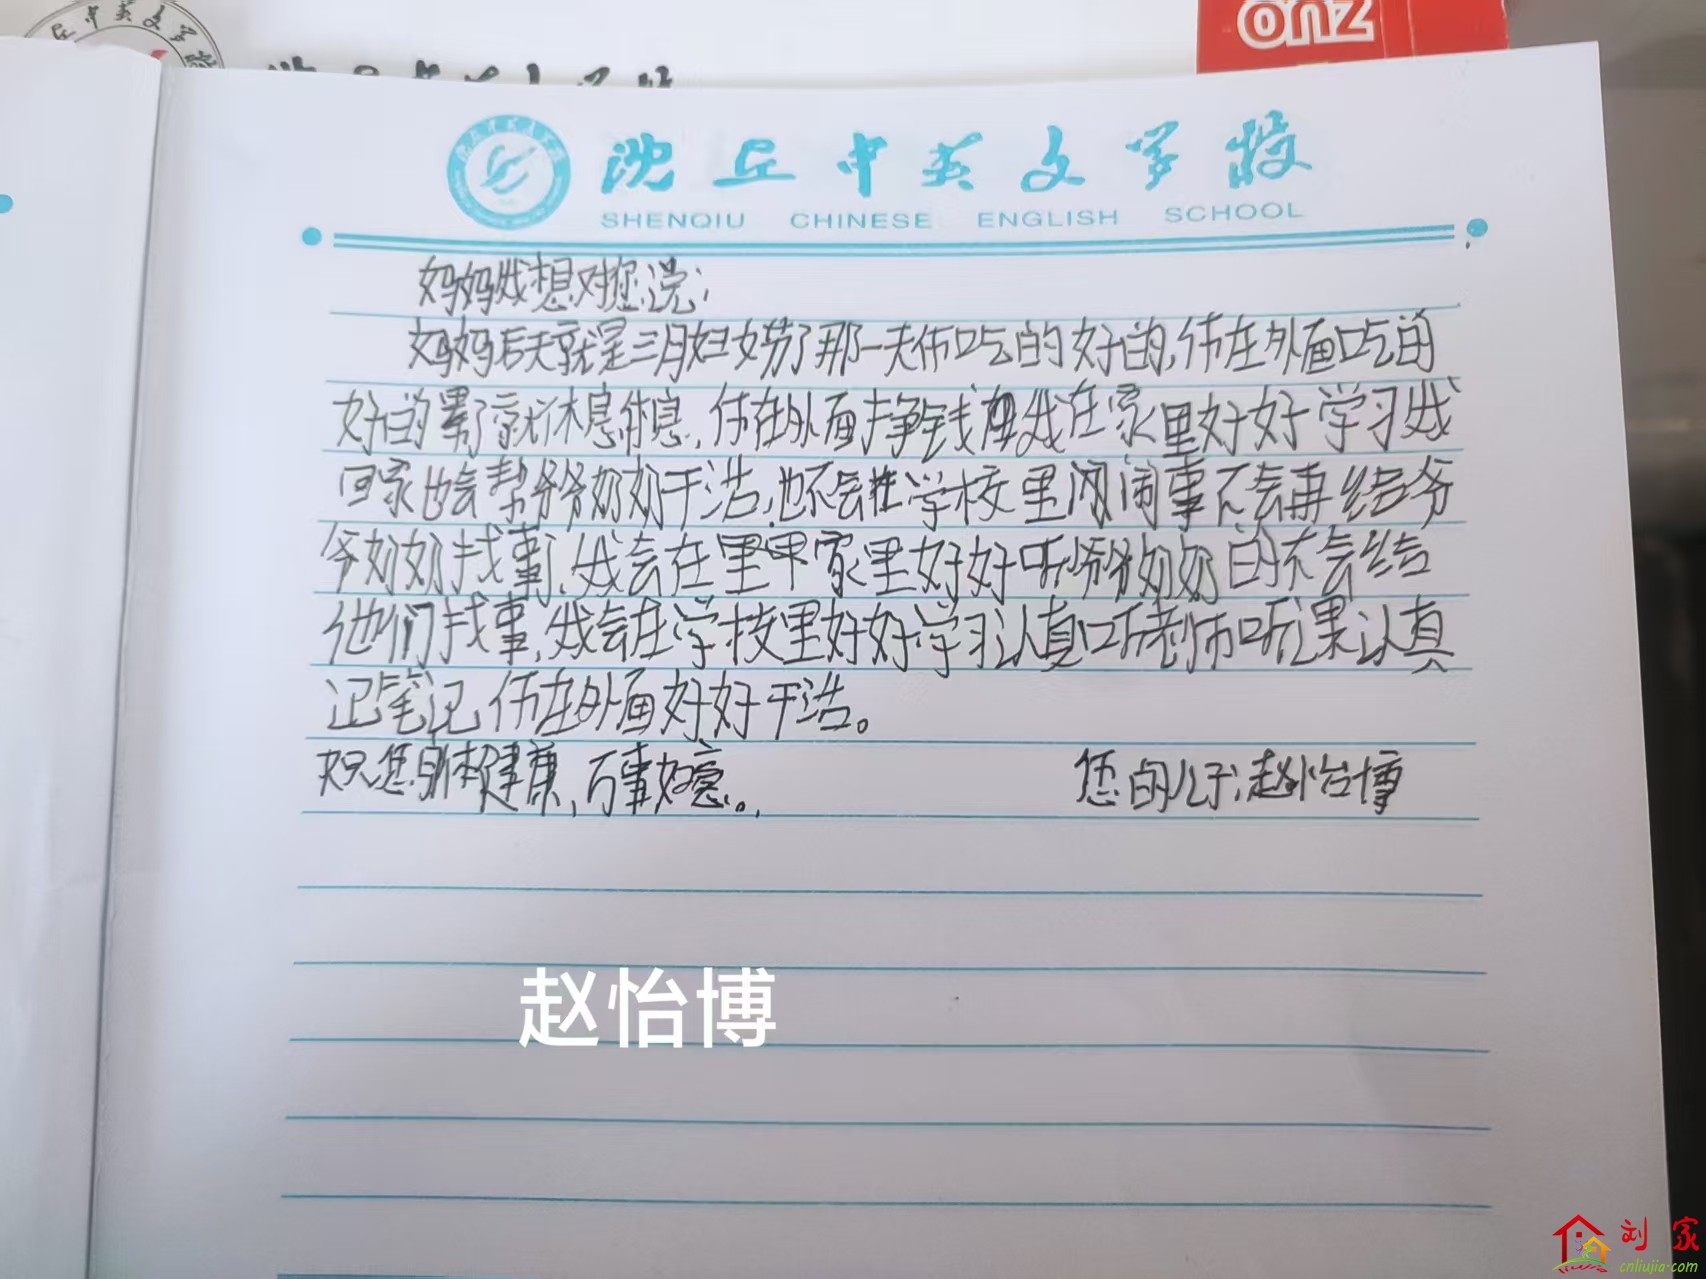 ZUO
沈丘中英文学校
SHENQIU CHINESE ENGLISH SCHOOL
妈妈我想对您说:
妈妈后天就是三月妇女节了那一天你吃的好的,你在外面吃的
好的累了就休息休息,你在外面挣钱我在家里好好学习我
回家也会帮爷爷奶奶干活,也不会在学校里闹事不会再给爷
爷奶奶找事,我会在家里好好听爷爷奶奶的不会给
他们找事,我会在学校里好好学习认真听老师听课认真
记笔记,你在外面好好干活。
祝您身体健康,万事如意。
您的儿子:赵怡博
赵怡博
刘家
cnliujia.com